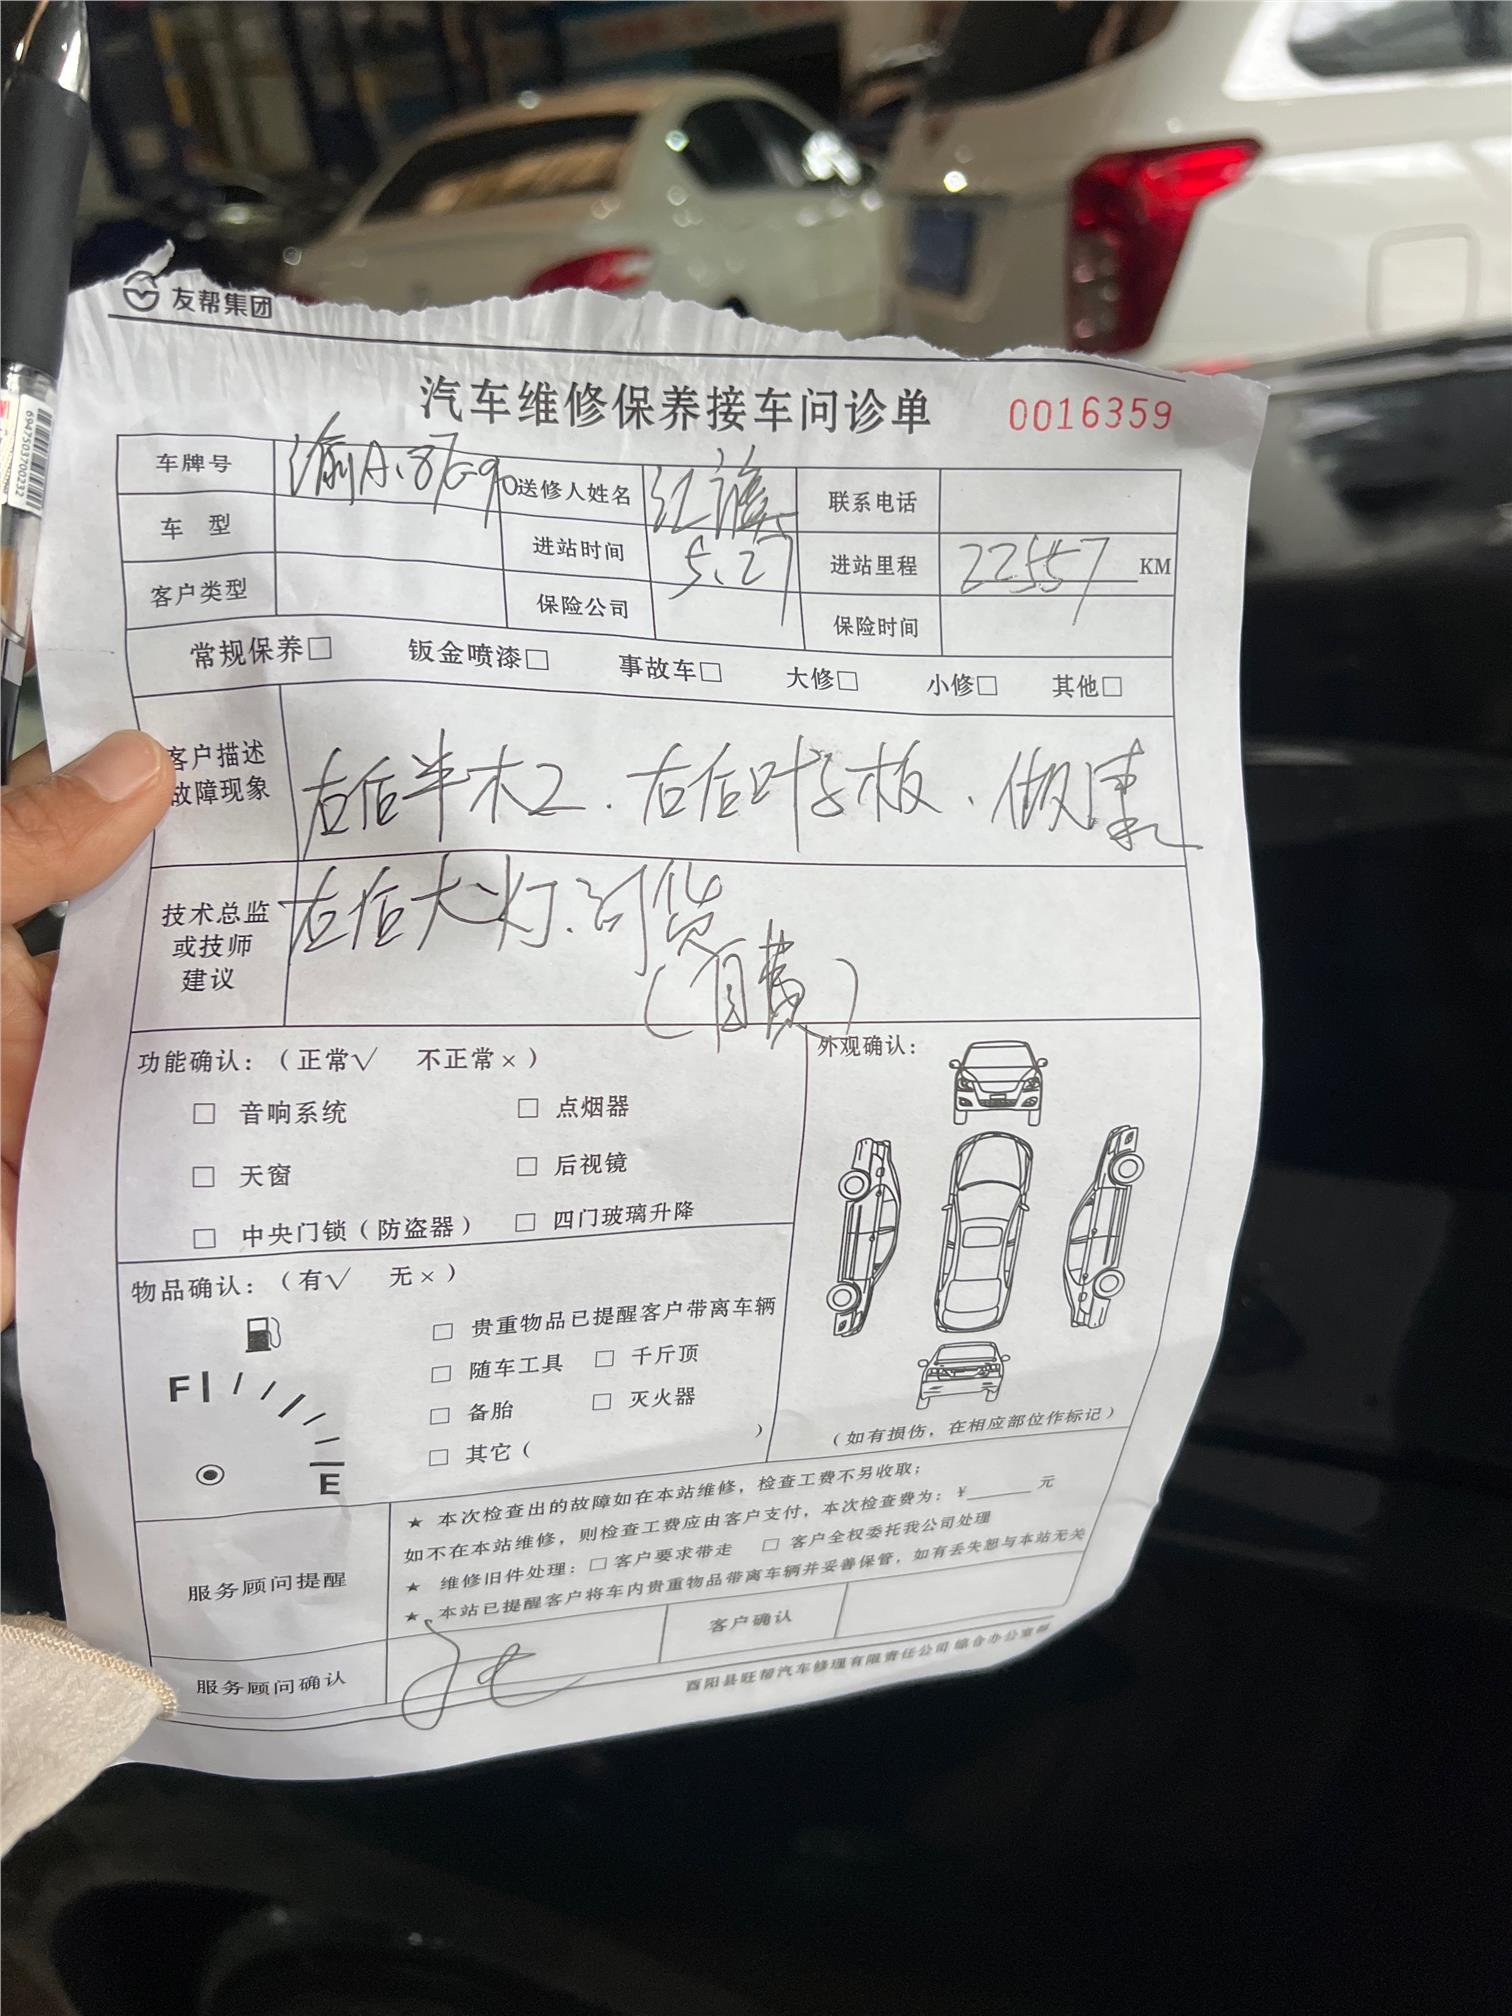 友帮集团
汽车维修保养接车问诊单 0016359
车牌号 渝A.87G90 送修人姓名 联系电话
车 型 进站时间 5.27 进站里程 22557 KM
客户类型 保险公司 保险时间
常规保养□ 钣金喷漆□ 事故车□ 大修□ 小修□ 其他□
客户描述
故障现象
右后叶子板.做漆
技术总监
或技师
建议
大灯.订货
(自费)
功能确认：（正常√ 不正常×）
□ 音响系统 □ 点烟器
□ 天窗 □ 后视镜
□ 中央门锁（防盗器） □ 四门玻璃升降
外观确认：
（如有损伤，在相应部位作标记）
物品确认：（有√ 无×）
□ 贵重物品已提醒客户带离车辆
□ 随车工具 □ 千斤顶
□ 备胎 □ 灭火器
□ 其它（ ）
F
E
服务顾问提醒
★ 本次检查出的故障如在本站维修，检查工费不另收取；
如不在本站维修，则检查工费应由客户支付，本次检查费为：¥______元
★ 维修旧件处理：□ 客户要求带走 □ 客户全权委托我公司处理
★ 本站已提醒客户将车内贵重物品带离车辆并妥善保管，如有丢失恕与本站无关
服务顾问确认 客户确认
酉阳县旺帮汽车修理有限责任公司 综合办公室制
6947503700232